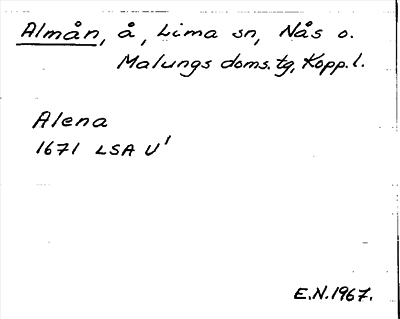 Almån, å, Lima sn, Nås o.
Malungs doms.tg, Kopp.l.
Alena
1671 LSA U'
E.N.1967.